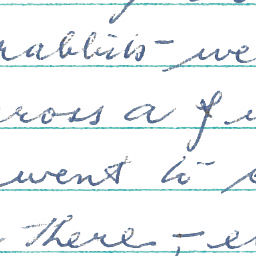 rabbits - we
ross a f
went to
there, - e